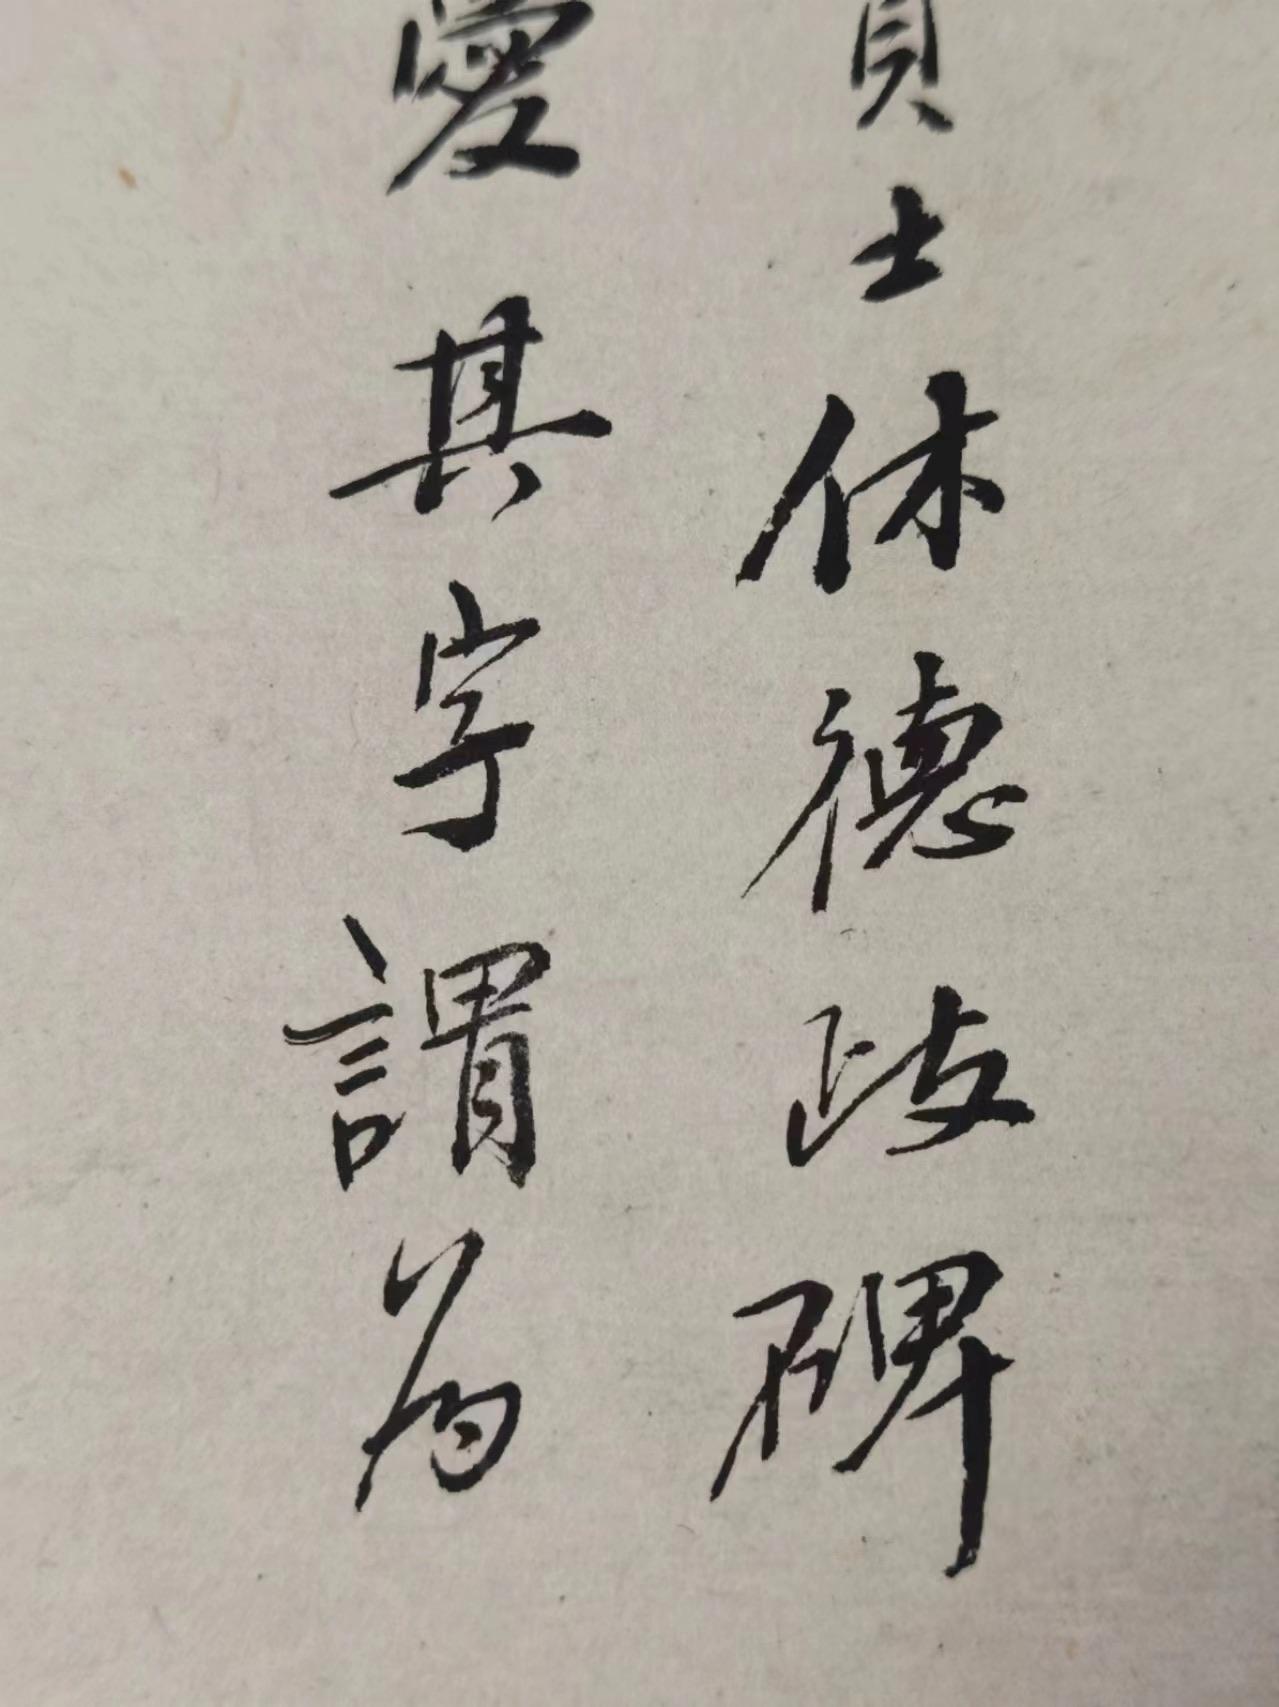 士休德政碑
愛其字謂為